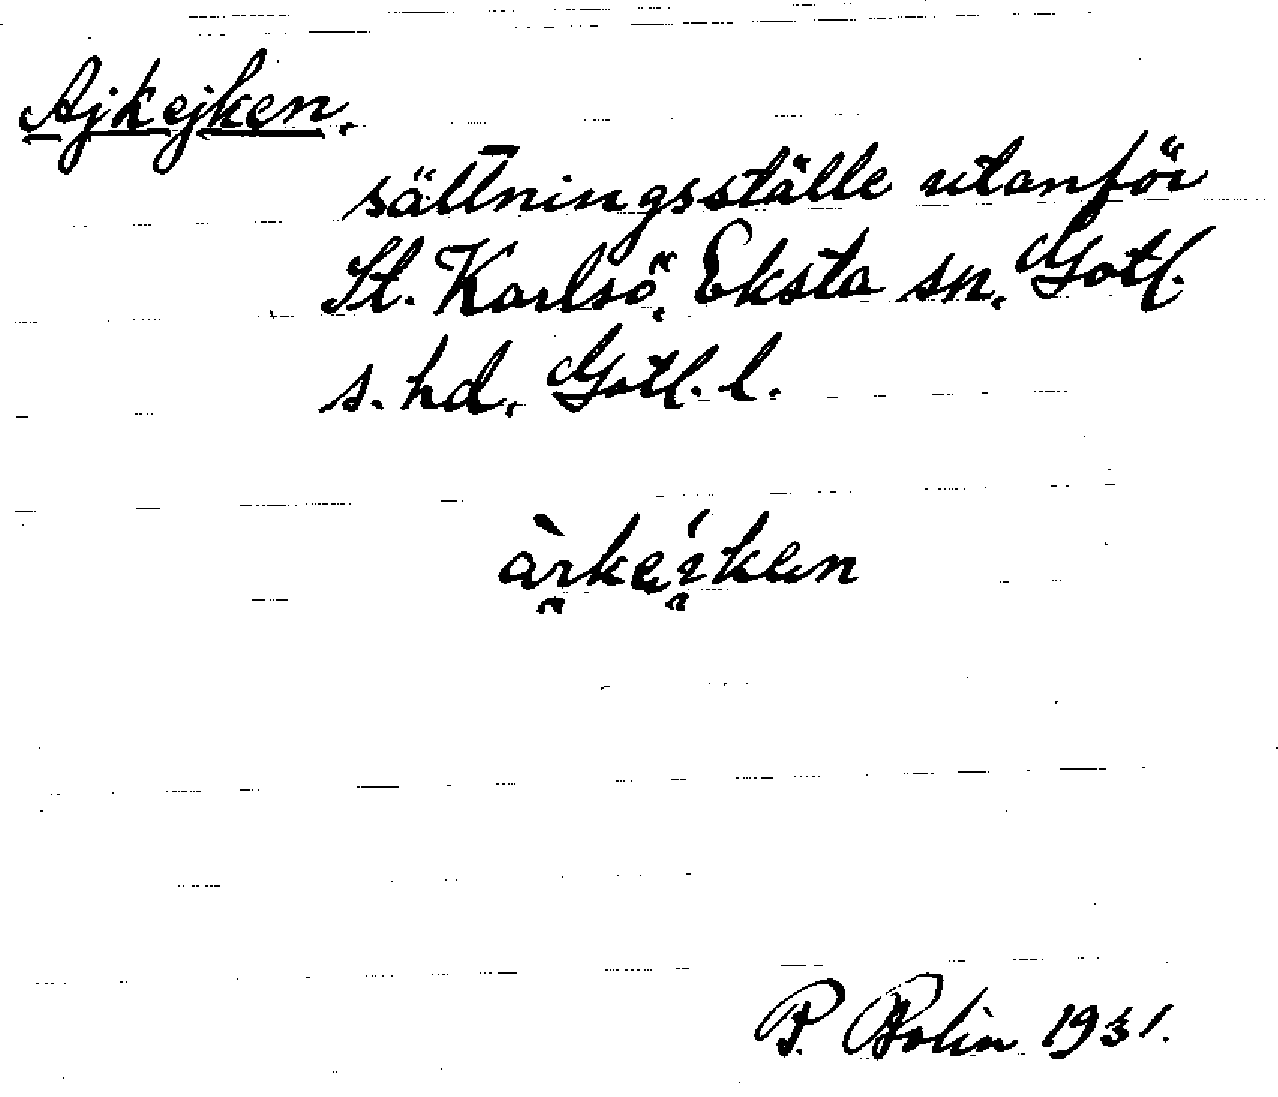 Ajkejken.
sättningsställe utanför
St. Karlsö, Eksta sn, Gotl.
s. hd, Gotl. l.
P. Bolin 1931.